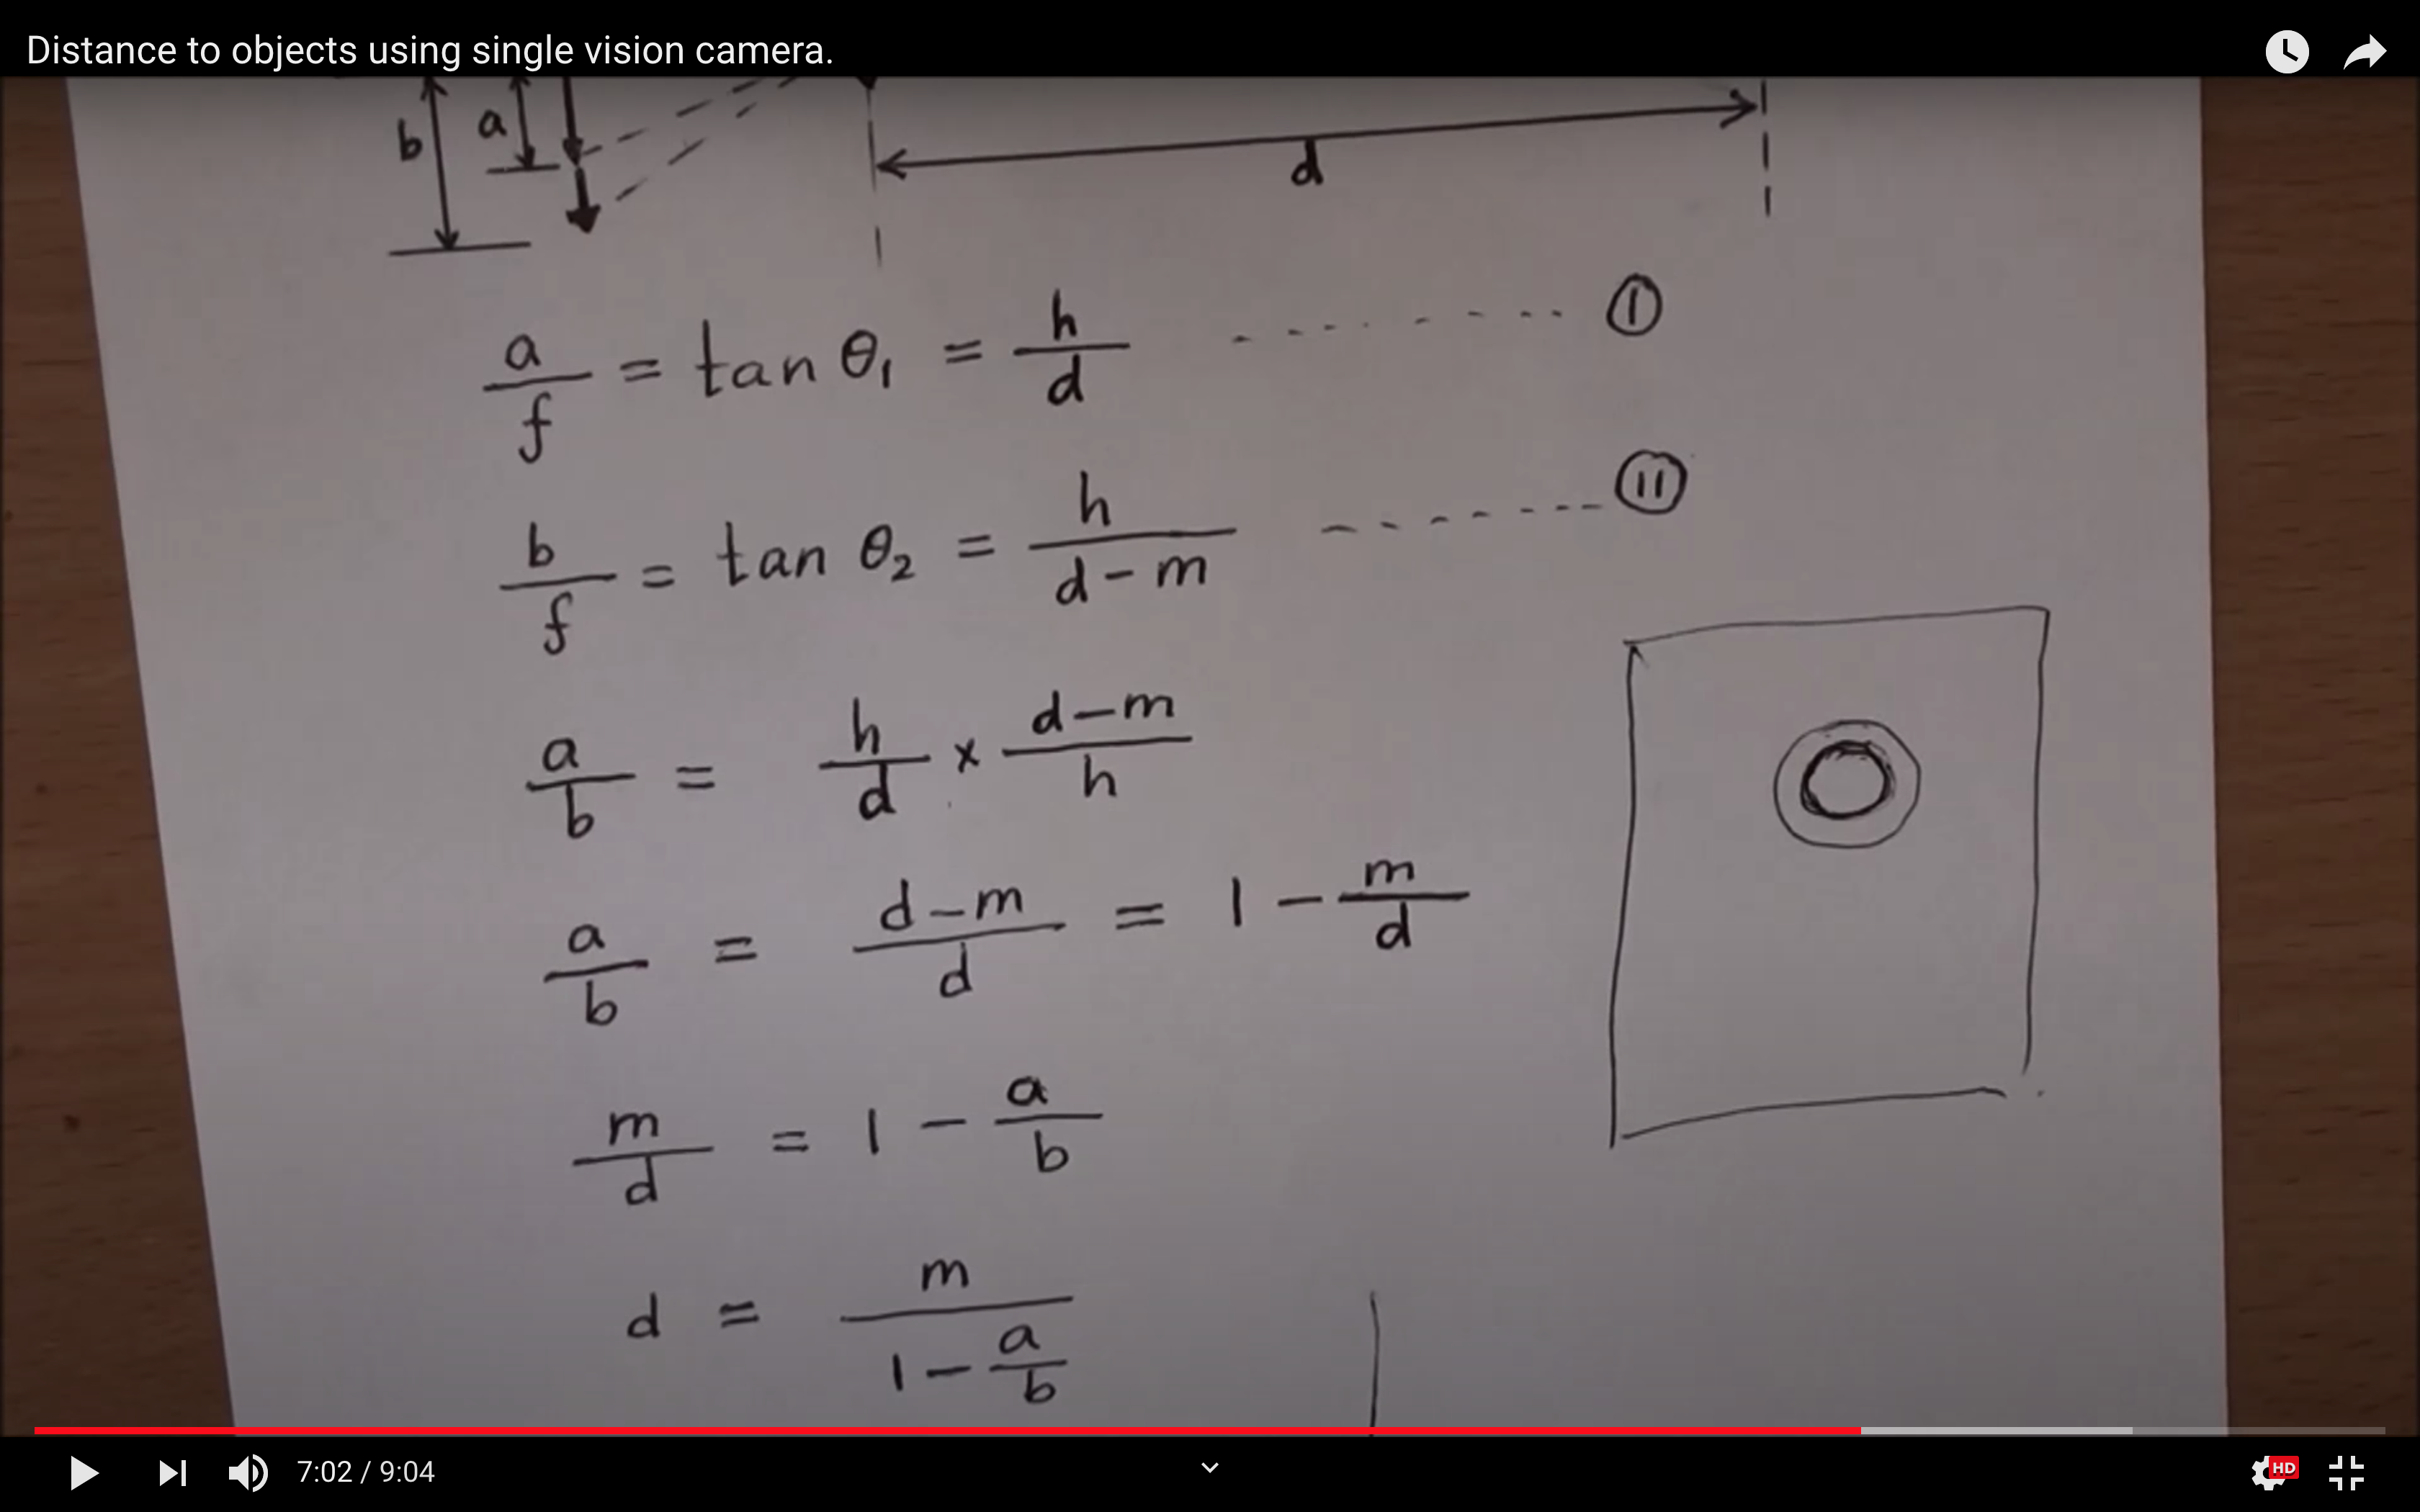 Distance to objects using single vision camera.
b a
d
a/f = tan θ₁ = h/d -------- I
b/f = tan θ₂ = h/(d-m) -------- II
a/b = h/d × (d-m)/h
a/b = (d-m)/d = 1 - m/d
m/d = 1 - a/b
d = m/(1 - a/b)
7:02 / 9:04
HD